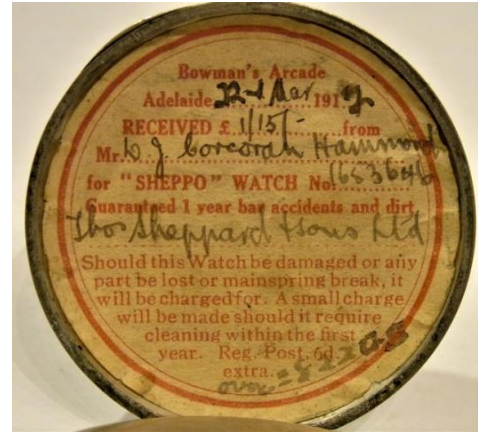 Bowman's Arcade
Adelaide 22nd Mar 1919
RECEIVED £ 1/15/- from
Mr. D J Corcoran Hammond
for "SHEPPO" WATCH No. 1653646
Guaranteed 1 year bar accidents and dirt.
Thos Sheppard & Sons Ltd
Should this Watch be damaged or any
part be lost or mainspring break, it
will be charged for. A small charge
will be made should it require
cleaning within the first
year. Reg. Post, 6d.
extra.
over